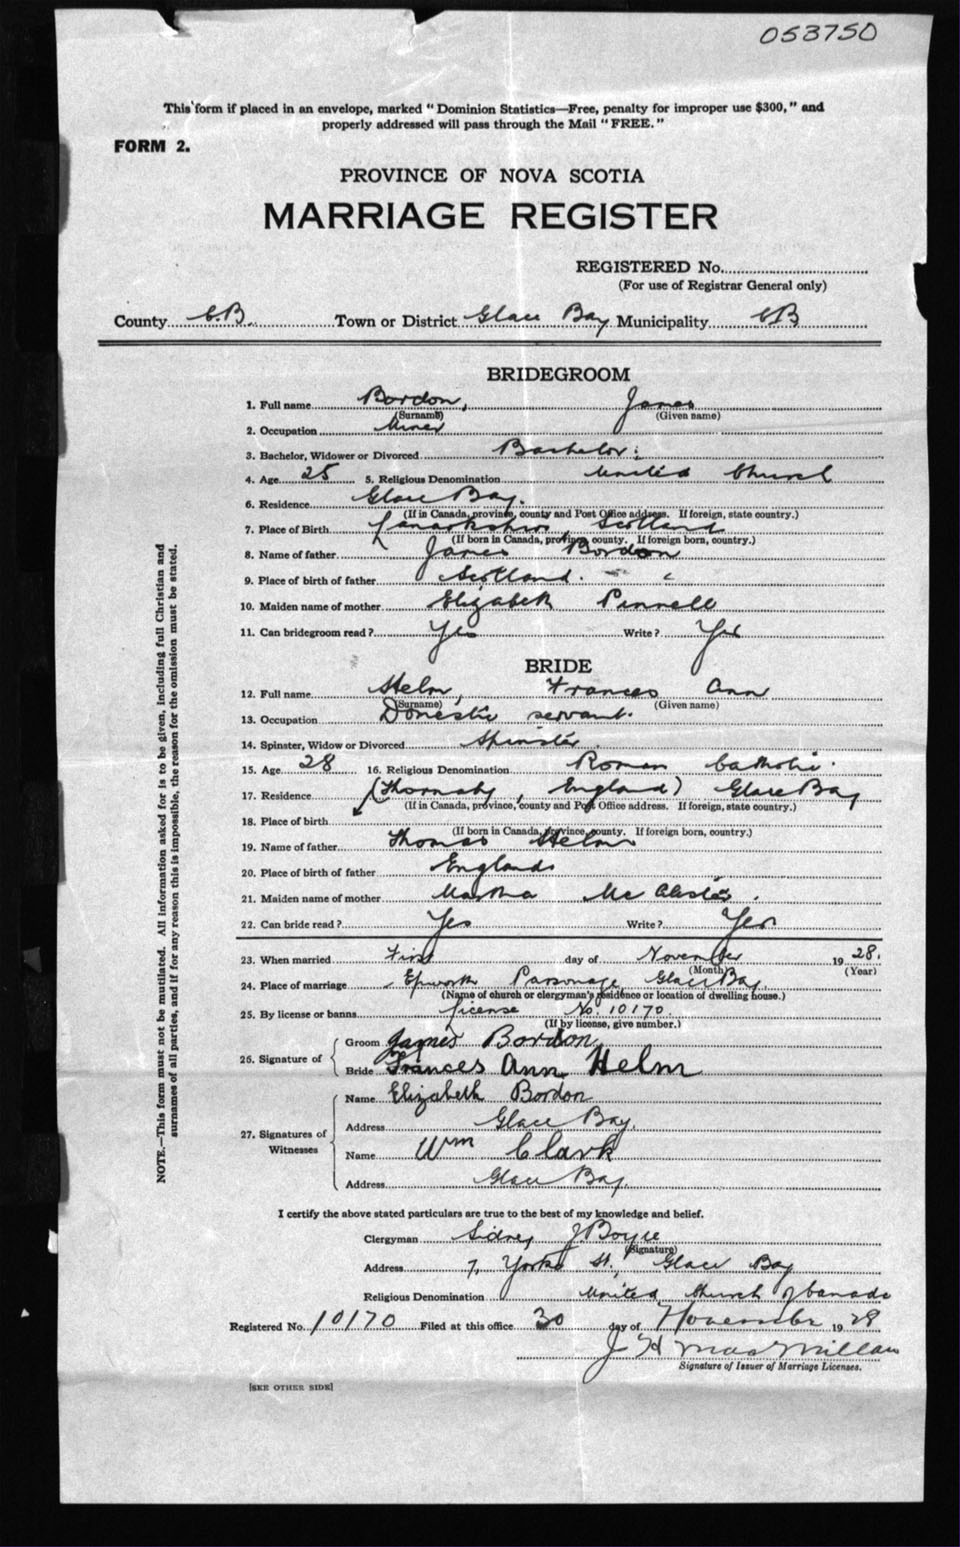 053750
This form if placed in an envelope, marked "Dominion Statistics—Free, penalty for improper use $300," and
properly addressed will pass through the Mail "FREE."
FORM 2.
PROVINCE OF NOVA SCOTIA
MARRIAGE REGISTER
REGISTERED No.
(For use of Registrar General only)
County C.B. Town or District Glace Bay Municipality CB
BRIDEGROOM
1. Full name Bordon, James
(Surname) (Given name)
2. Occupation Miner
3. Bachelor, Widower or Divorced Bachelor
4. Age 25 5. Religious Denomination United Church
6. Residence Glace Bay.
(If in Canada, province, county and Post Office address. If foreign, state country.)
7. Place of Birth Lanarkshire, Scotland
(If born in Canada, province, county. If foreign born, country.)
8. Name of father James Bordon
9. Place of birth of father Scotland.
10. Maiden name of mother Elizabeth Pinnell
11. Can bridegroom read? Yes Write? Yes
BRIDE
12. Full name Helm, Frances Ann
(Surname) (Given name)
13. Occupation Domestic servant.
14. Spinster, Widow or Divorced Spinster.
15. Age 28 16. Religious Denomination Roman Catholic.
17. Residence (Thornaby, England) Glace Bay
(If in Canada, province, county and Post Office address. If foreign, state country.)
18. Place of birth
(If born in Canada, province, county. If foreign born, country.)
19. Name of father Thomas Helm
20. Place of birth of father England
21. Maiden name of mother Martha
22. Can bride read? Yes Write? Yes
23. When married First day of November 1928.
(Month) (Year)
24. Place of marriage Epworth Parsonage, Glace Bay
(Name of church or clergyman's residence or location of dwelling house.)
25. By license or banns license No. 10170.
(If by license, give number.)
26. Signature of
Groom James Bordon
Bride Frances Ann Helm
27. Signatures of Witnesses
Name Elizabeth Bordon
Address Glace Bay,
Name Wm Clark
Address Glace Bay,
I certify the above stated particulars are true to the best of my knowledge and belief.
Clergyman Sidney J Boyce
(Signature)
Address 7, York St., Glace Bay
Religious Denomination United Church of Canada
Registered No. 10170 Filed at this office 30 day of November 1928
J H MacMillan
Signature of Issuer of Marriage Licenses.
[SEE OTHER SIDE]
NOTE.—This form must not be mutilated. All information asked for is to be given, including full Christian and
surnames of all parties, and if for any reason this is impossible, the reason for the omission must be stated.